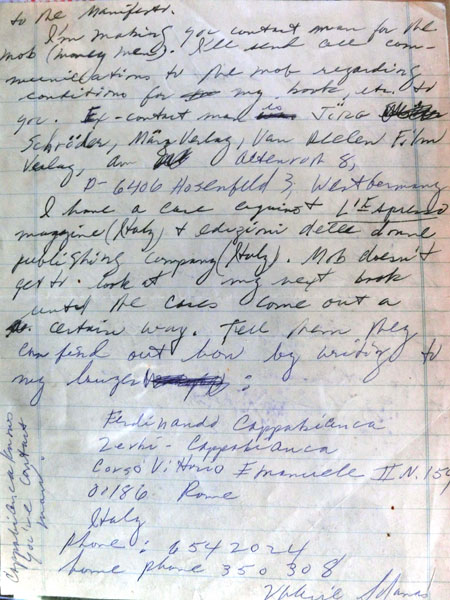 to the Manifesto.
I'm making you contact man for the
mob (money men). I'll send all com-
munications to the mob regarding
conditions for my book, etc. to
you. Ex-contact man is Jörg
Schröder, März Verlag, Van Acken Film
Verlag, Am Altenrott 8,
D-6406 Hosenfeld 3, West Germany
I have a case against L'Espresso
magazine (Italy) & edizioni delle donne
publishing company (Italy). Mob doesn't
get to look at my next book
until the cases come out a
certain way. Tell them they
can find out how by writing to
my lawyer :
Ferdinando Cappabianca
Zerhi - Cappabianca
Corso Vittorio Emanuele II N. 154
00186 Rome
Italy
phone : 6542024
home phone 350 308
Valerie Solanas
Cappabianca knows
you're contact
man.